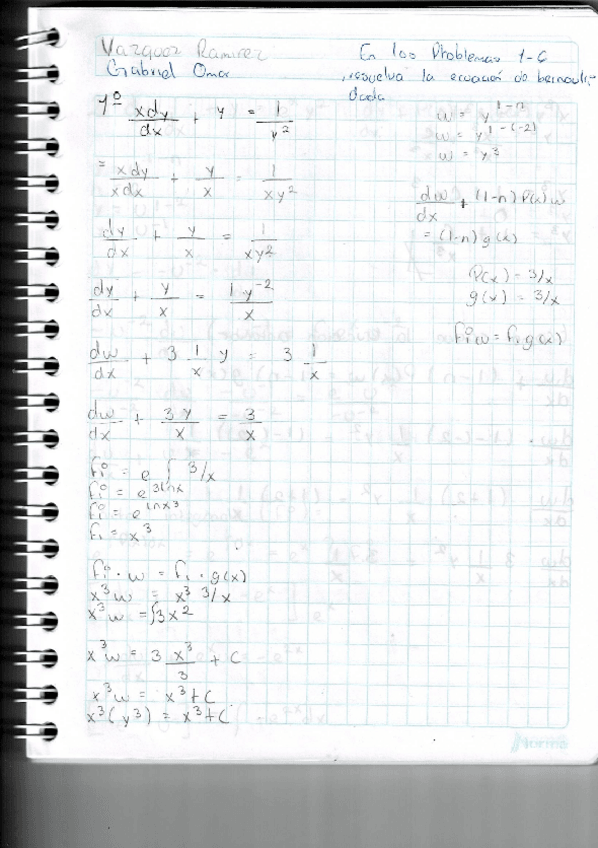 Vazquez Ramirez
Gabriel Omar
En los Problemas 1-6
, resuelva la ecuación de bernoulli
dada
1º xdy/dx + y = 1/y²
= xdy/xdx + y/x = 1/xy²
dy/dx + y/x = 1/xy²
dy/dx + y/x = 1y⁻²/x
dw/dx + 3 1/x y = 3 1/x
dw/dx + 3y/x = 3/x
fi = e∫ 3/x
fi = e^3lnx
fi = e^lnx3
fi = x³
fi · w = fi · g(x)
x³w = x³ 3/x
x³w = ∫3x²
x³w = 3 x³/3 + C
x³w = x³+C
x³(y³) = x³+C
w = y^1-n
w = y^1-(-2)
w = y³
dw/dx + (1-n) P(x) w
= (1-n) g(x)
P(x) = 3/x
g(x) = 3/x
fi w = fi g(x)
Norma